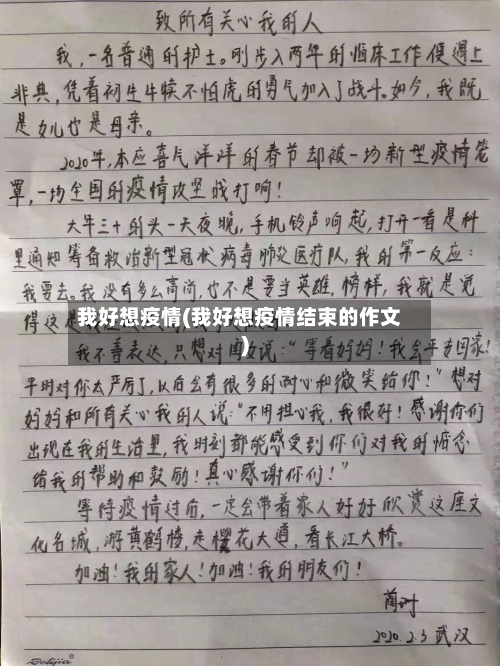 致所有关心我的人
我,一名普通的护士。刚步入两年的临床工作便遇上
非典,凭着初生牛犊不怕虎的勇气加入了战斗。如今,我既
是女儿也是母亲。
2020年,本应喜气洋洋的春节却被一场新型疫情笼
罩,一场全国的疫情攻坚战打响!
大年三十的头一天夜晚,手机铃声响起,打开一看是科
里通知筹备救治新型冠状病毒肺炎医疗队,我的第一反应:
我要去。我没有多么高尚,也不是要当英雄,榜样,我就是觉
得这是
我好想疫情(我好想疫情结束的作文
)
我不善表达,只想对闺女说:“等着妈妈!我会平安回家!
平时对你太严厉了,以后会有很多的耐心和微笑给你!”想对
妈妈和所有关心我的人说:“不用担心我,我很好!感谢你们
出现在我的生活里,我时刻都能感受到你们对我的惦念
给我的帮助和鼓励!真心感谢你们!”
等待疫情过后,一定会带着家人好好欣赏这座文
化名城,游黄鹤楼,走樱花大道,看长江大桥。
加油!我的家人!加油!我的朋友们!
2020.2.3 武汉